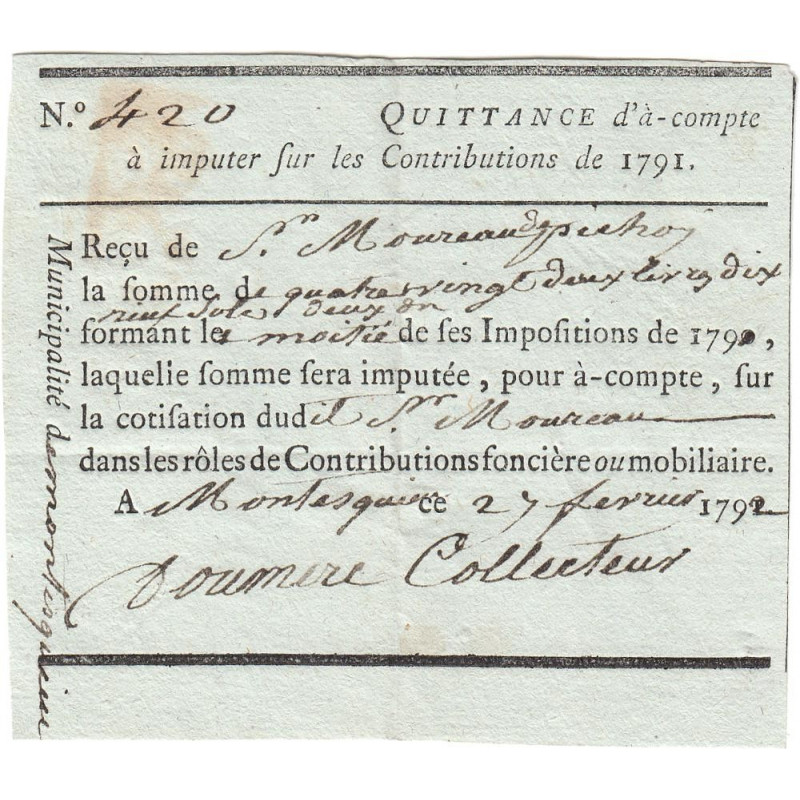 N.º 420 QUITTANCE d'à-compte
à imputer ſur les Contributions de 1791.
Reçu de S.r Moureau
la ſomme de quatre vingt deux livres dix
neuf sols deux dn
formant le moitié de ſes Impoſitions de 1790,
laquelle ſomme ſera imputée, pour à-compte, ſur
la cotiſation dudit S.r Moureau
dans les rôles de Contributions foncière ou mobiliaire.
A Montesquieu ce 27 fevrier 1792
Doumere Collecteur
Municipalité de montesquieu